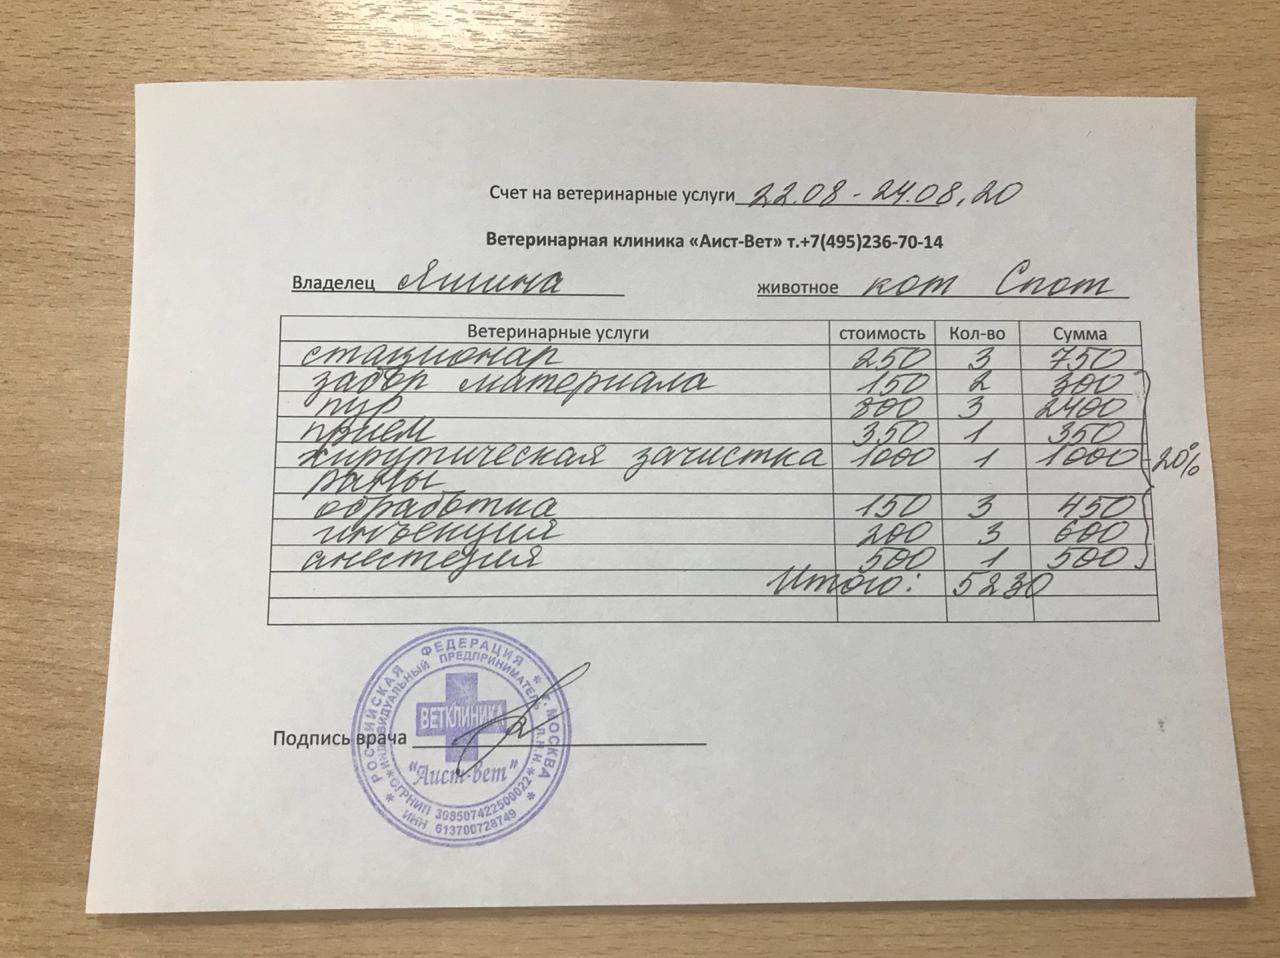 Счет на ветеринарные услуги 22.08 - 24.08.20
Ветеринарная клиника «Аист-Вет» т.+7(495)236-70-14
Владелец Яшина животное кот Спот
Ветеринарные услуги стоимость Кол-во Сумма
стационар 250 3 750
забор материала 150 2 300
пур 800 3 2400
прием 350 1 350
хирургическая зачистка 1000 1 1000 -20%
раны
обработка 150 3 450
инъекция 200 3 600
анестезия 500 1 500
Итого: 5230
Подпись врача
* РОССИЙСКАЯ ФЕДЕРАЦИЯ * г. МОСКВА *
ИНДИВИДУАЛЬНЫЙ ПРЕДПРИНИМАТЕЛЬ
ВЕТКЛИНИКА
"Аист-вет"
ОГРНИП 308507422500022
ИНН 613700728749